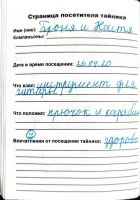 Страница посетителя тайника
Имя (ник): Броня и Настя
Компаньоны:
Дата и время посещения: 26.04.20
Что взяли: инструмент для
гитары
Что положили: крючок и карабин
Впечатления от посещения тайника: здорово